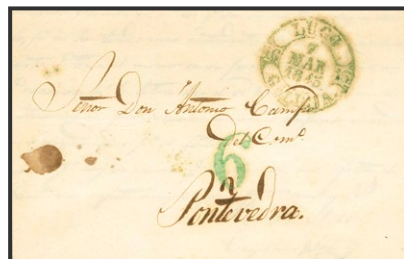 LUGO
7
MAR
1845
GALICIA.
Señor Don Antonio Campo
Del Comº.
6
Pontevedra.